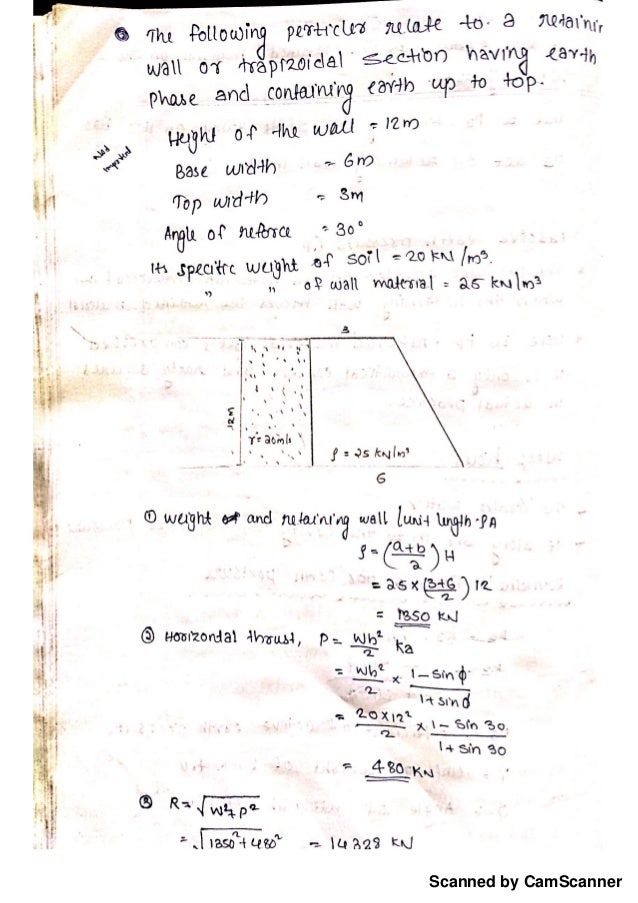 The following perticler relate to a retainir
wall or trapizoidal section having earth
phase and containing earth up to top.
Height of the wall = 12m
Base width = 6m
Top width = 3m
Angle of reforce = 30°
Its specific weight of soil = 20 KN/m³.
" " of wall material = 25 KN/m³
3
12m
r = 20m/s
ρ = 25 KN/m³
6
① weight and retaining wall /unit length = ρA
ρ = (a+b/2) H
= 25 × (3+6/2) 12
= 1350 KN
② Horizondal thrust, P = Wh²/2 ka
= Wh²/2 × 1-sinφ/1+sinφ
= 20×12²/2 × 1-Sin 30/1+sin 30
= 480 KN
③ R = √W²+P²
= √1350²+480² = 14328 KN
Scanned by CamScanner